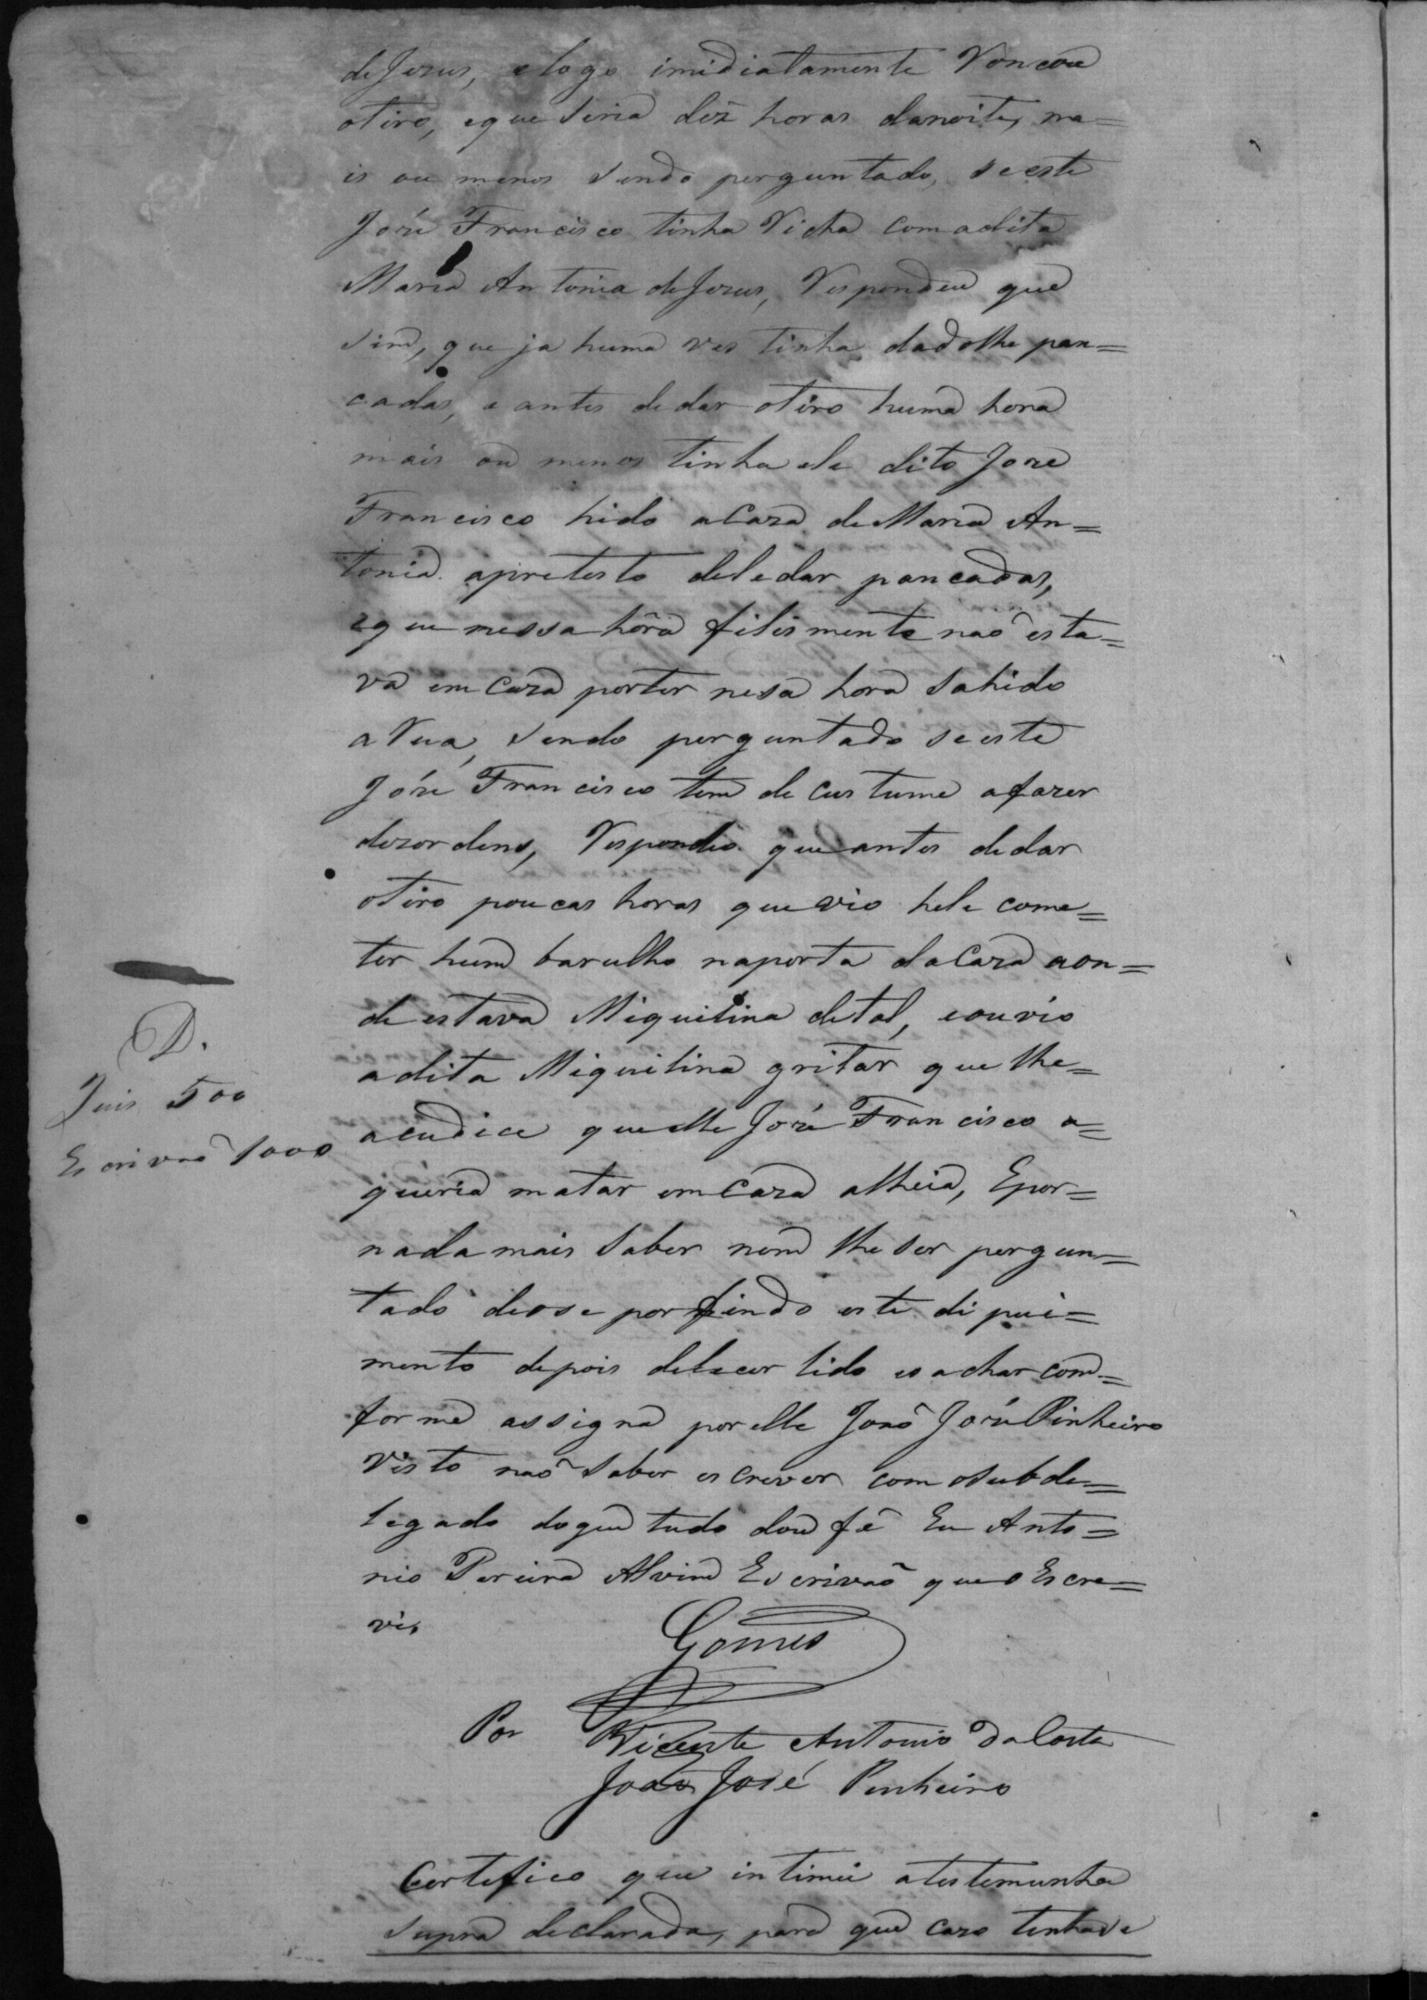 deJezus, elogo imidiatamente Roncou
otiro, eque Seria déz horas danoite, ma=
is ou menos Sendo perguntado, Seeste
José Francisco tinha Richa comadita
Maria Antonia deJezus, Respondeu que
Sim, que ja huma ves tinha dadolhe pan=
cadas, e antes dedar otiro huma hora
mais ou menos tinha ele dito Joze
Francisco hido aCaza deMaria An=
tonia apretesto deledar pancadas,
eque nessa hóra felismente naõ esta=
va em Caza porter nesa hora Sahido
a Rua, Sendo perguntado Seeste
José Francisco tem de custume afazer
dezordens, Respondeo que antes dedar
otiro poucas horas que vio hele come=
ter hum barulho naporta daCaza aon=
de estava Miquilina detal, eouvio
adita Miquilina gritar que lhe=
acudice que elle José Francisco a=
queria matar em Caza alheia, Epor=
nada mais Saber nem lhe Ser pergun=
tado deose porfindo este dipui=
mento depois delhecer lido eo achar com=
forme assigna porelle Joaõ José Pinheiro
visto naõ Saber escrever com oSubde=
legado doque tudo dou fé Eu Anto=
nio Pereira Alvim Escrivaõ que o Escre=
vi,
Gomes
Por Vicente Antonio da Costa
João José Pinheiro
D.
Juis 500
Escrivaõ 1000
Certefico que intimei atestemunha
Supra declarada, para que cazo tenhade